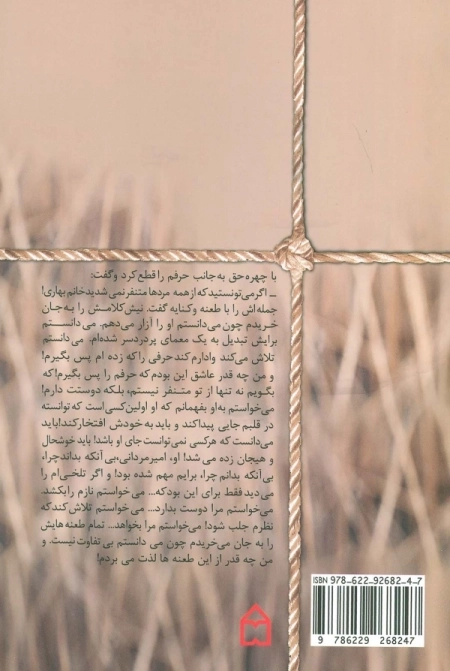 با چهره حق به جانب حرفم را قطع کرد و گفت:
ـ اگر می‌تونستید که از همه مردها متنفر نمی شدید خانم بهاری!
جمله‌اش را با طعنه و کنایه گفت. نیش کلامش را به جان
خریدم چون می‌دانستم او را آزار می‌دهم. می دانستم
برایش تبدیل به یک معمای پردردسر شده‌ام. می دانستم
تلاش می‌کند وادارم کند حرفی را که زده ام پس بگیرم!
و من چه قدر عاشق این بودم که حرفم را پس بگیرم! که
بگویم نه تنها از تو متنفر نیستم، بلکه دوستت دارم!
می‌خواستم به‌او بفهمانم که او اولین‌کسی است که توانسته
در قلبم جایی پیدا کند و باید به خودش افتخار کند! باید
می‌دانست که هرکسی نمی‌توانست جای او باشد! باید خوشحال
و هیجان زده می شد! او، امیر مردانی، بی آنکه بداند چرا،
بی‌آنکه بدانم چرا، برایم مهم شده بود! و اگر تلخی‌ام را
می‌دید فقط برای این بود که... می‌خواستم نازم را بکشد.
می‌خواستم مرا دوست بدارد... می‌خواستم تلاش کند که
نظرم جلب شود! می‌خواستم مرا بخواهد... تمام طعنه هایش
را به جان می‌خریدم چون می دانستم بی تفاوت نیست. و
من چه قدر از این طعنه ها لذت می بردم!
ISBN 978-622-92682-4-7
9 786229 268247